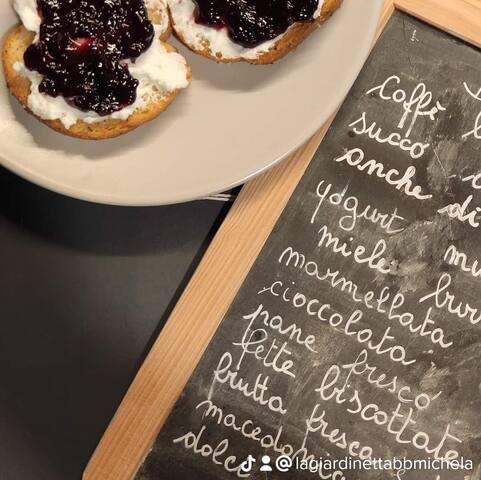 caffè
succo
anche di
yogurt
miele
marmellata
cioccolata
pane fresco
fette biscottate
frutta fresca
macedonia
dolce
@lagiardinettabbmichela